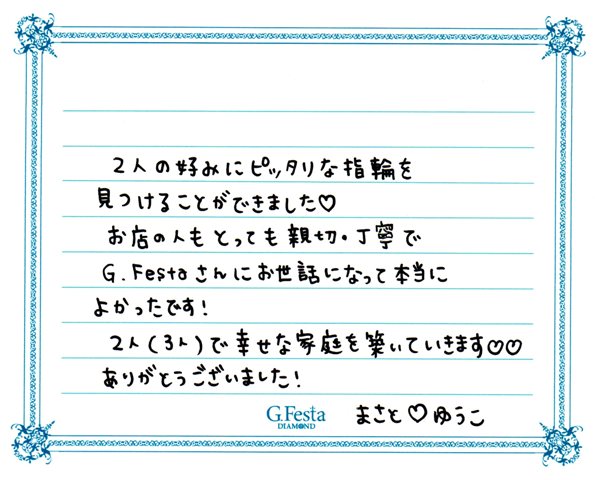 2人の好みにピッタリな指輪を
見つけることができました♡
お店の人もとっても親切・丁寧で
G.Festaさんにお世話になって本当に
よかったです!
2人(3人)で幸せな家庭を築いていきます♡♡
ありがとうございました!
G.Festa
DIAMOND
まさと♡ゆうこ